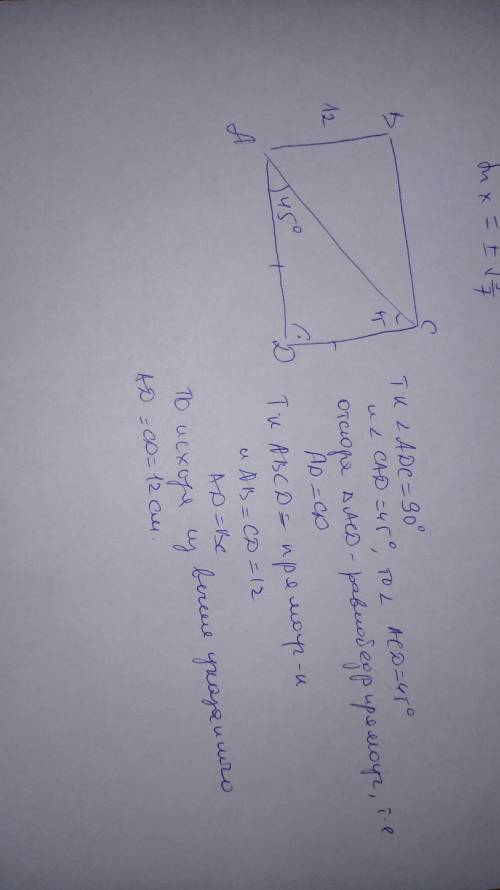 x = ± √
B
12
A
45°
45
C
D
Тк ∠ADC=90°
и ∠CAD=45°, то ∠ ACD=45°
отсюда ΔACD - равнобедр прямоуг, т.е
AD=CD
Тк ABCD = прямоуг-к
и AB=CD=12
AD=BC
То исходя из выше указанного
AD=CD=12см.